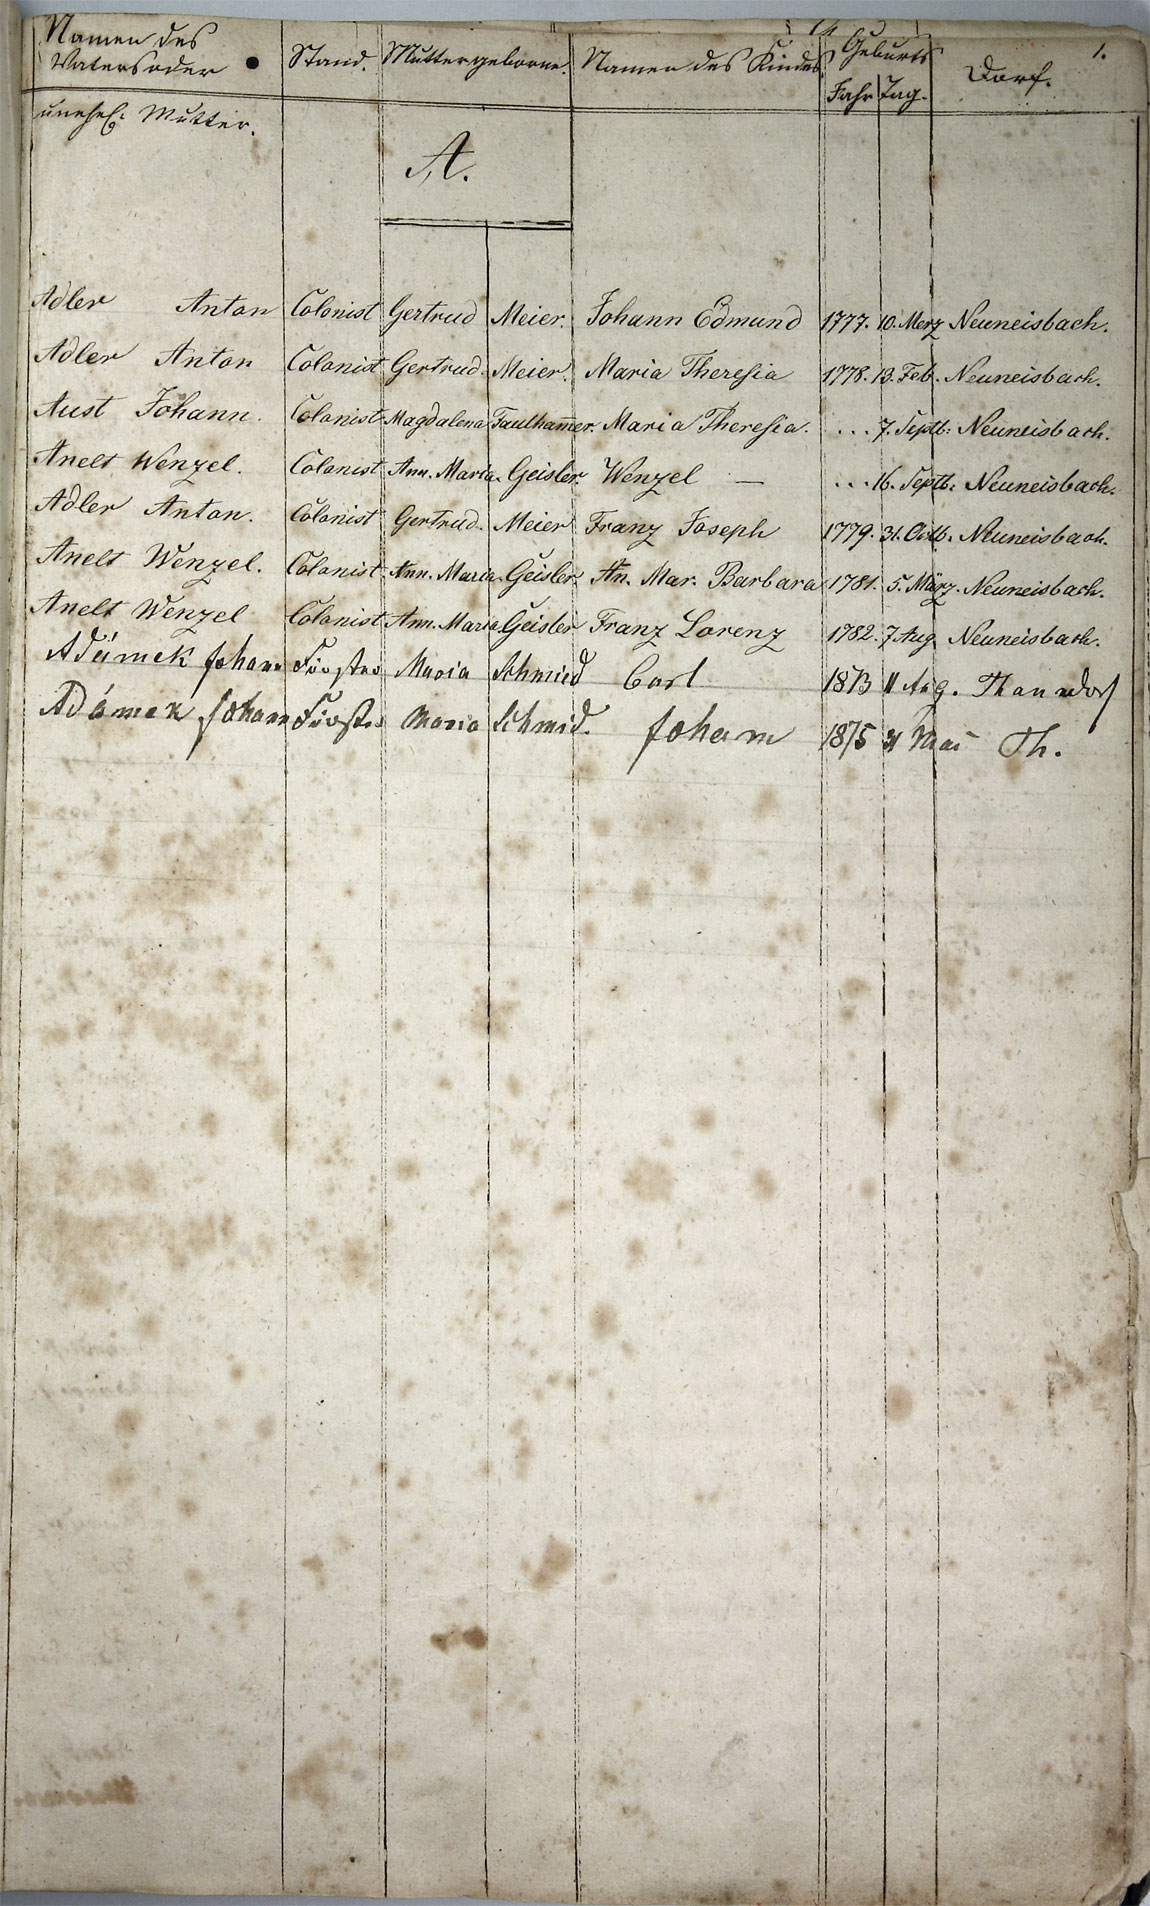 Namen des Vaters oder Stand. Mutter geborne. Namen des Kindes Geburts Dorf. 1.
Jahr Tag.
unehel: Mutter.
A.
Adler Anton Colonist Gertrud Meier. Johann Edmund 1777. 10. Merz Neuneisbach.
Adler Anton Colonist Gertrud. Meier. Maria Theresia 1778. 13. Feb. Neuneisbach.
Aust Johann. Colonist Magdalena Faulham̅er. Maria Theresia. ... 7. Septb: Neuneisbach.
Anelt Wenzel. Colonist Ann. Maria. Geisler. Wenzel — ... 16. Septb: Neuneisbach.
Adler Anton. Colonist Gertrud. Meier Franz Joseph 1779. 31. Octb. Neuneisbach.
Anelt Wenzel. Colonist Ann. Maria. Geisler. An. Mar. Barbara 1781. 5. März. Neuneisbach.
Anelt Wenzel Colonist Ann. Maria Geisler Franz Lorenz 1782. 7 Aug. Neuneisbach.
Adámek Johann Förster Maria Schmied Carl 1873 11 Aug. Thanndorf
Adámek Johann Förster Maria Schmid. Johann 1875 31 Mai Th.